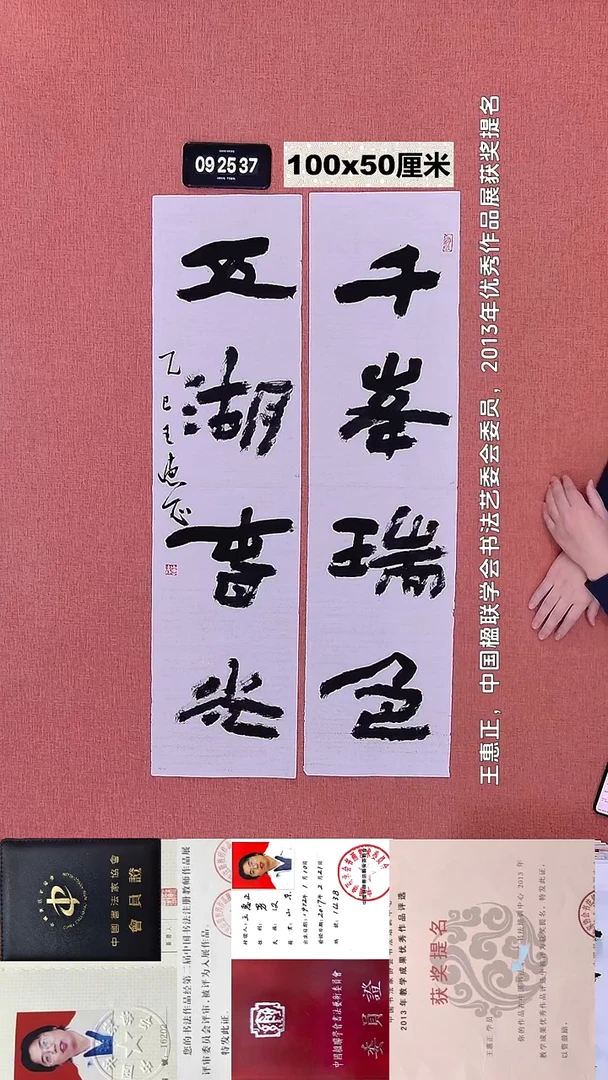 09 25 37
100x50厘米
千峯瑞色
五湖春光
乙巳王惠正
王惠正，中国楹联学会书法艺委会委员，2013年优秀作品展获奖提名
中國書法家協會
會員證
您的书法作品经第二届中国书法注册教师作品展
评审委员会评审，被评为入展作品。
特发此证。
中國楹聯學會書法藝術委員會
委員證
2013年教学成果优秀作品评选
获奖提名
王惠正 学员
以资鼓励。